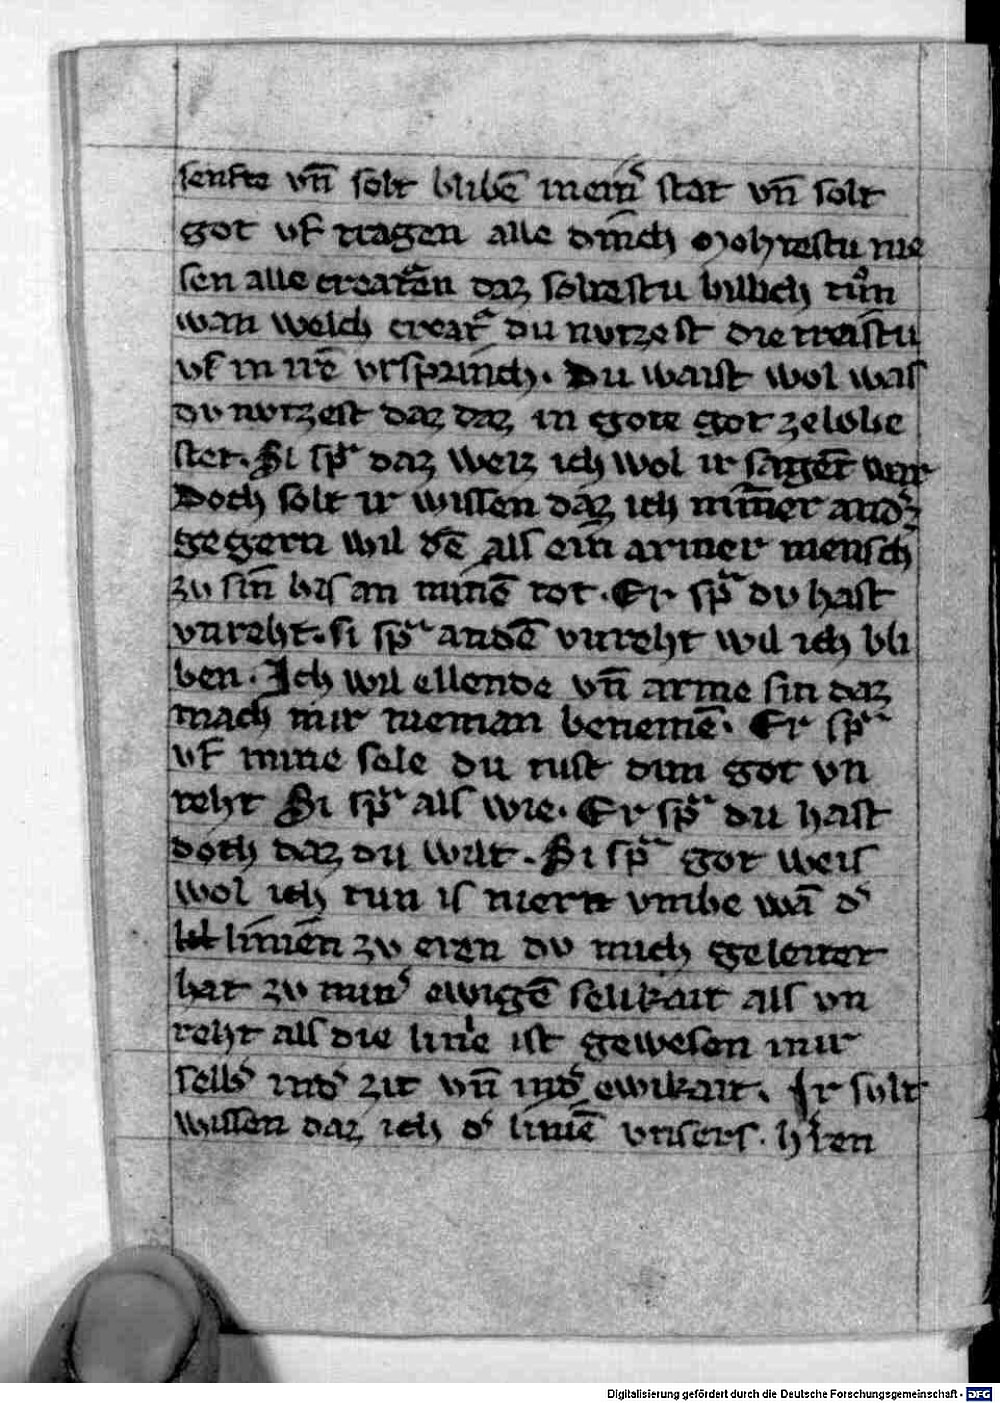 senfte vn̄ solt blibē in eim̄ᵉ stat vn̄ solt
got vf tragen alle dīnch Mohtestu nie
sen alle creatᵉ̄n daz soltestu billich tůn
wan welch creatᵉ du nvtzest die treistu
vf in irē vrsprinch. Du waist wol was
dv nvtzest daz daz in gote got ze lobe
stet. Si spͬ daz weiz ich wol ir sagēt war
Doch solt ir wissen daz ich nim̄er andˢ
gegern wil dē als ein armer mensch
zu sin bis an minē tot. Er spͬ dv hast
vnreht. si spͬ an dē vnreht wil ich bli
ben. Ich wil ellende vn̄ arme sin daz
mach mir nieman benemē. Er spͬ
vf mine sele du tust dim got vn
reht Si spͬ als wie. Er spͬ du hast
doch daz du wilt. Si spͬ got weis
wol ich tun is niern vmbe wā dˢ
linien zv eren dv mich geleitet
hat zv minˢ ewigē selikait als vn
reht als die linie ist gewesen mir
selbˢ in dˢ zit vn̄ in dˢ ewikait. Ir sult
wissen daz ich dˢ liniē vnsers. hˢren
Digitalisierung gefördert durch die Deutsche Forschungsgemeinschaft - DFG